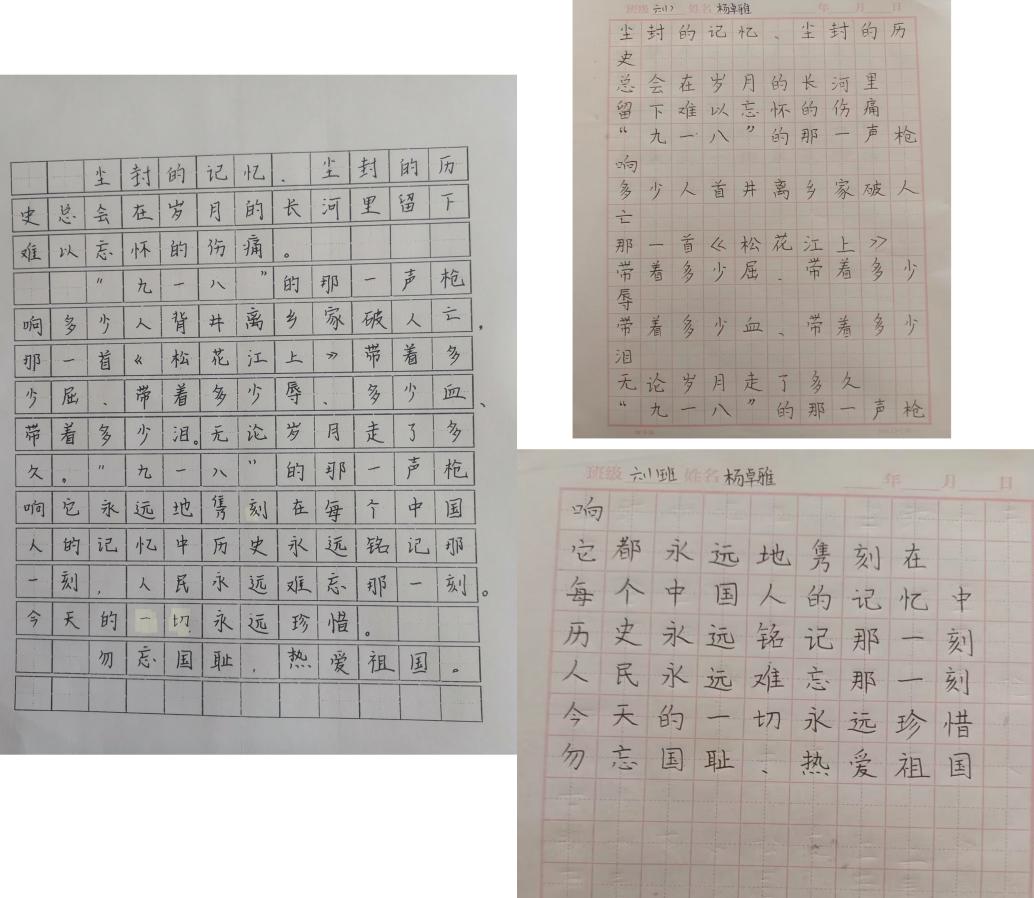 尘封的记忆、尘封的历
史总会在岁月的长河里留下
难以忘怀的伤痛。
“九一八”的那一声枪
响多少人背井离乡家破人亡，
那一首《松花江上》带着多
少屈、带着多少辱、多少血、
带着多少泪。无论岁月走了多
久。“九一八”的那一声枪
响它永远地隽刻在每个中国
人的记忆中历史永远铭记那
一刻，人民永远难忘那一刻。
今天的一切永远珍惜。
勿忘国耻，热爱祖国。
班级 六(1) 姓名 杨卓雅 年 月 日
尘封的记忆、尘封的历
史
总会在岁月的长河里
留下难以忘怀的伤痛
“九一八”的那一声枪
响
多少人首井离乡家破人
亡
那一首《松花江上》
带着多少屈、带着多少
辱
带着多少血、带着多少
泪
无论岁月走了多久
“九一八”的那一声枪
班级 六(1)班 姓名 杨卓雅 年 月 日
响
它都永远地隽刻在
每个中国人的记忆中
历史永远铭记那一刻
人民永远难忘那一刻
今天的一切永远珍惜
勿忘国耻、热爱祖国